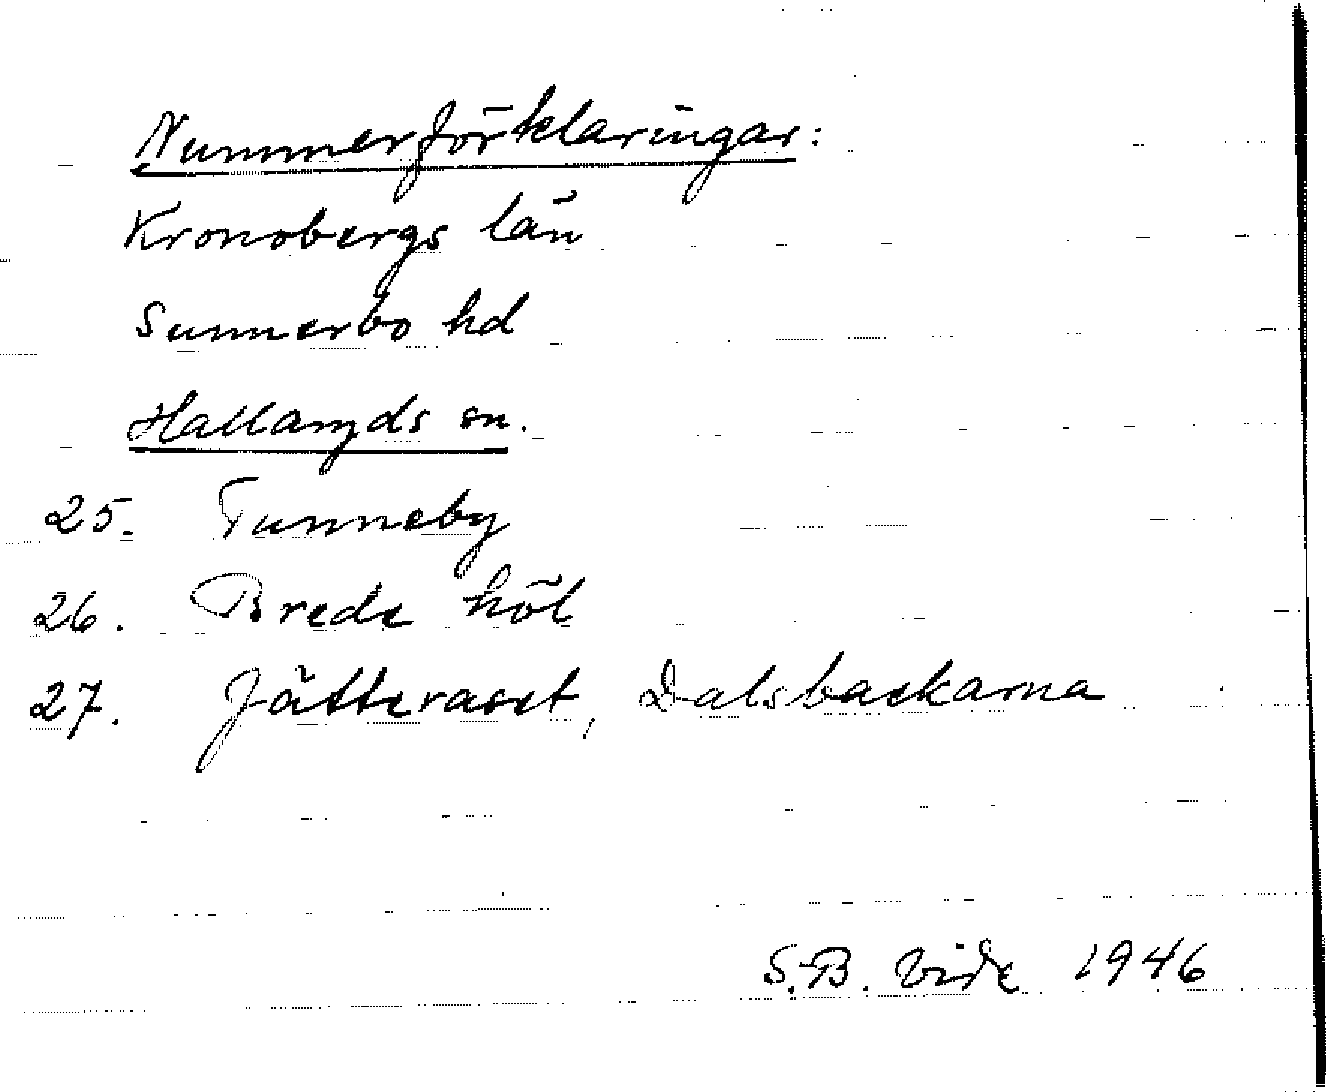 Nummerförklaringar:
Kronobergs län
Sunnerbo hd
Hallaryds sn.
25. Tunneby
26. Brede höl
27. Jätteraset, Dalsbackarna
S.-B. Vide 1946